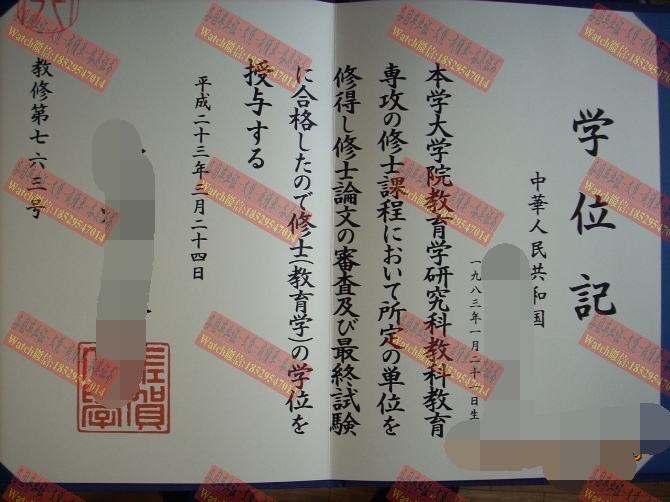 学位記
中華人民共和国
一九八三年一月二十一日生
本学大学院教育学研究科教科教育
専攻の修士課程において所定の単位を
修得し修士論文の審査及び最終試験
に合格したので修士(教育学)の学位を
授与する
平成二十三年三月二十四日
教修第七六三号
Watch微信:18529547014